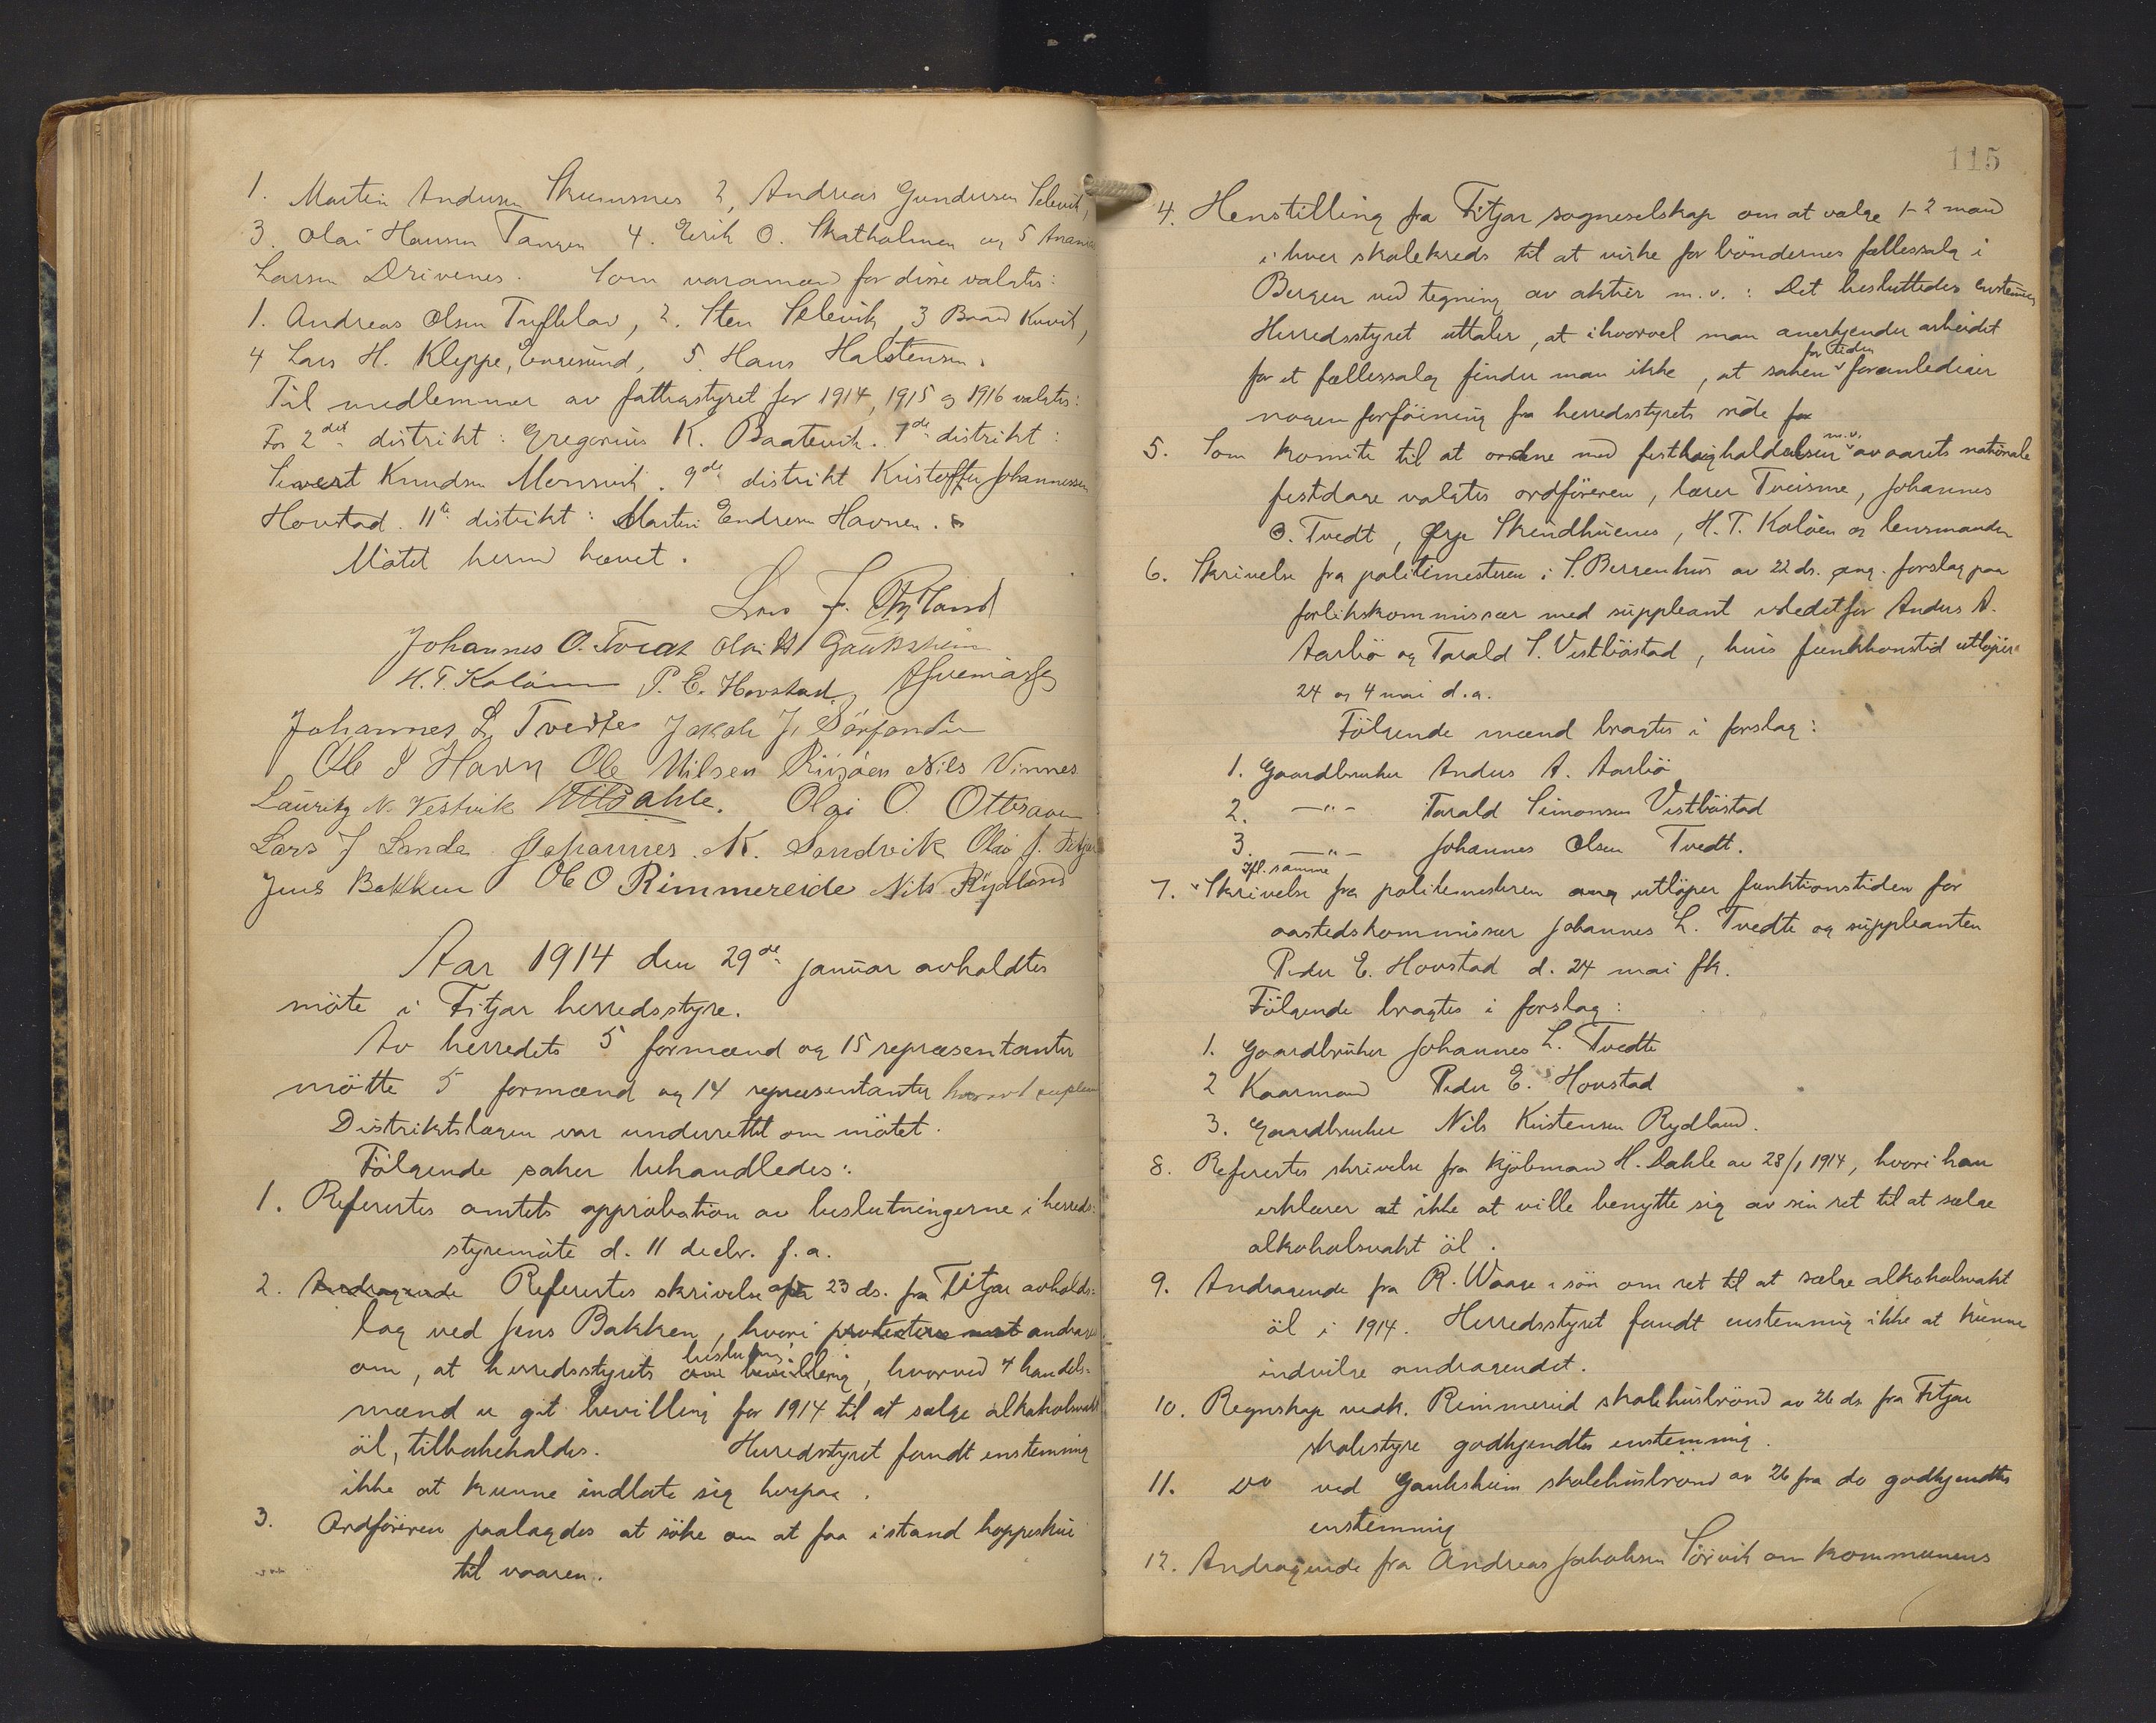 1. Martin Andersen Skumsnes 2, Andreas Gundersen Selevik,
3. Olai Hansen Tangen 4. Eirik O. Skatholmen og 5
Larsen Drivenes. Som varamænd for disse valgtes:
1. Andreas Olsen Tufteland, 2. Sten Selevik, 3 Baard Kuvik,
4 Lars H. Kleppe, Engesund, 5. Hans Halstensen.
Til medlemmer av fattigstyret for 1914, 1915 og 1916 valgtes:
For 2det distrikt: Gregorius K. Baatevik. 7de distrikt:
Sivert Knudsen Mørsvik. 9de distrikt Kristoffer Johannessen
Hovstad. 11te distrikt: Martin Endresen Havnen.
Mötet herved hævet.
Lars J. Rydland
Johannes O. Tvedt Olai H Gaukshiem
H. T. Kalöen P. E. Hovstad
Johannes L. Tvedte Jakob J. Sörfonden
Ole J Havn Ole Nilsen Risöen Nils Vinnes
Lauritz N. Vestvik H Dahle. Olai O. Ottesaven
Lars J Sande Johannes K. Sandvik Olav J. Fitjar
Jens Bakken Ole O Rimmereide Nils Rydland
Aar 1914 den 29de januar avholdtes
möte i Fitjar herredsstyre.
Av herredets 5 formænd og 15 repræsentanter
mötte 5 formænd og 14 repræsentanter hvorav 1 suplean
Distriktslægen var underrettet om mötet.
Fölgende saker behandledes:
1. Refertes amtets approbation av beslutningerne i herreds=
styremöte d. 11 decbr. f.a.
2. Andragende Refertes skrivelse av 23 ds. fra Fitjar avholds=
lag ved Jens Bakken, hvori protesteres mot andrages
om, at herredsstyrets beslutning bevilling, hvorved 4 handels=
mænd er git bevilling for 1914 til at sælge alkoholsvakt
öl, tilbakekaldes. Herredsstyret fandt enstemmig
ikke at kunne indlate sig herpaa.
3. Ordföreren paalagdes at söke om at faa istand hoppeskue
til vaaren.
115
4. Henstilling fra Fitjar sogneselskap om at vælge 1-2 mand
i hver skolekreds til at virke for böndernes fællessalg i
Bergen ved tegning av aktier m.v.: Det besluttedes enstemmig
Herredsstyret uttaler, at ihvorvel man anerkjender arbeidet
for tiden
for et fællessalg finder man ikke, at saken foranlediger
nogen forföining fra herredsstyrets side for
m.v.
5. Som komite til at ordne med festligholdelsen av aarets nationale
festdage valgtes ordföreren, lærer Tveisme, Johannes
O. Tvedt, Ørje Skindhuenes, H. T. Kalöen og lensmanden
6. Skrivelse fra politimesteren i S. Bergenhus av 22 ds. ang. forslag paa
forlikskommissær med suppleant istedetfor Anders A.
Aarbö og Tarald S. Vestböstad, hvis funktionstid utlöper
24 og 4 mai d.a.
Fölgende mænd bragtes i forslag:
1. Gaardbruker Anders A. Aarbö
2. —"— Tarald Simonsen Vestböstad
3. —"— Johannes Olsen Tvedt.
Ifl. samme
7. Skrivelse fra politimesteren ang utlöper funktionstiden for
aastedskommissær Johannes L. Tvedte og suppleanten
Peder E. Hovstad d. 24 mai fk.
Fölgende bragtes i forslag:
1. Gaardbruker Johannes L. Tvedte
2 Kaarmand Peder E. Hovstad
3. Gaardbruker Nils Kristensen Rydland.
8. Refertes skrivelse fra kjöbmand H. Dahle av 28/1 1914, hvori han
erklærer at ikke at ville benytte sig av sin ret til at sælge
alkoholsvakt öl.
9. Andragende fra R. Waage & sön om ret til at sælge alkoholsvakt
öl i 1914. Herredsstyret fandt enstemmig ikke at kunne
indvilge andragendet.
10. Regnskap vedk. Rimmereid skolehusbrönd av 26 ds. fra Fitjar
skolestyre godkjendtes enstemmig.
11. Do ved Gaukshiem skolehusbrönd av 26 fra do godkjendtes
enstemmig
12. Andragende fra Andreas Jakobsen Sörvik om kommunens